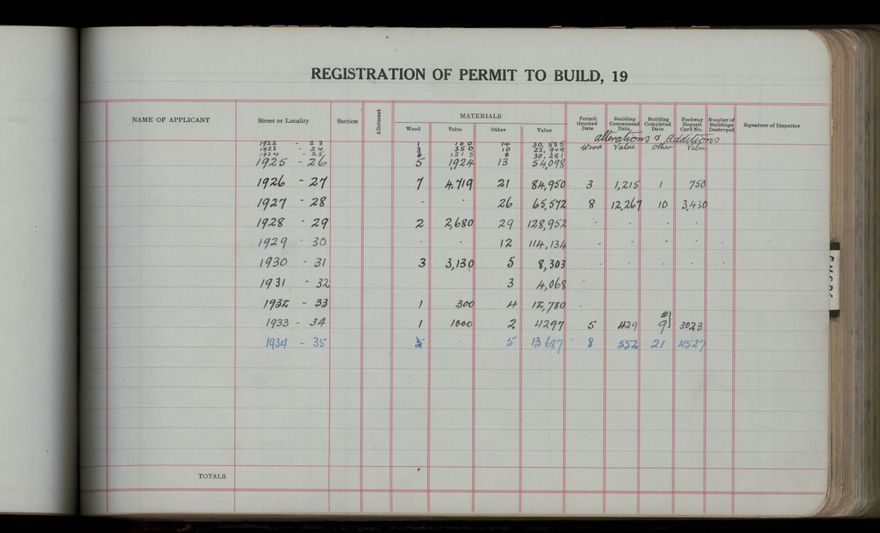 REGISTRATION OF PERMIT TO BUILD, 19
NAME OF APPLICANT Street or Locality Section Allotment MATERIALS Wood Value Other Value Permit Granted Date Building Commenced Date Building Completed Date Footway Deposit Card No. Number of Buildings Destroyed Signature of Inspector
alterations & Additions
Wood Value Other Value
1922 - 23 1 100 14 30,535
1923 - 24 3 350 10 22,949
1924 - 25 1215 8 30,281
1925 - 26 5 1,924 13 54,098
1926 - 27 7 4,719 21 84,950 3 1,215 1 750
1927 - 28 · · 26 65,572 8 12,267 10 3,430
1928 - 29 2 2,680 29 128,952 · · · ·
1929 - 30 · · 12 114,134 - - - -
1930 - 31 3 3,130 5 8,303 · - - -
1931 - 32 3 4,068
1932 - 33 1 300 4 12,780
1933 - 34 1 1000 2 4297 5 429 9 3023
1934 - 35 · 5 13687 8 552 21 4527
TOTALS